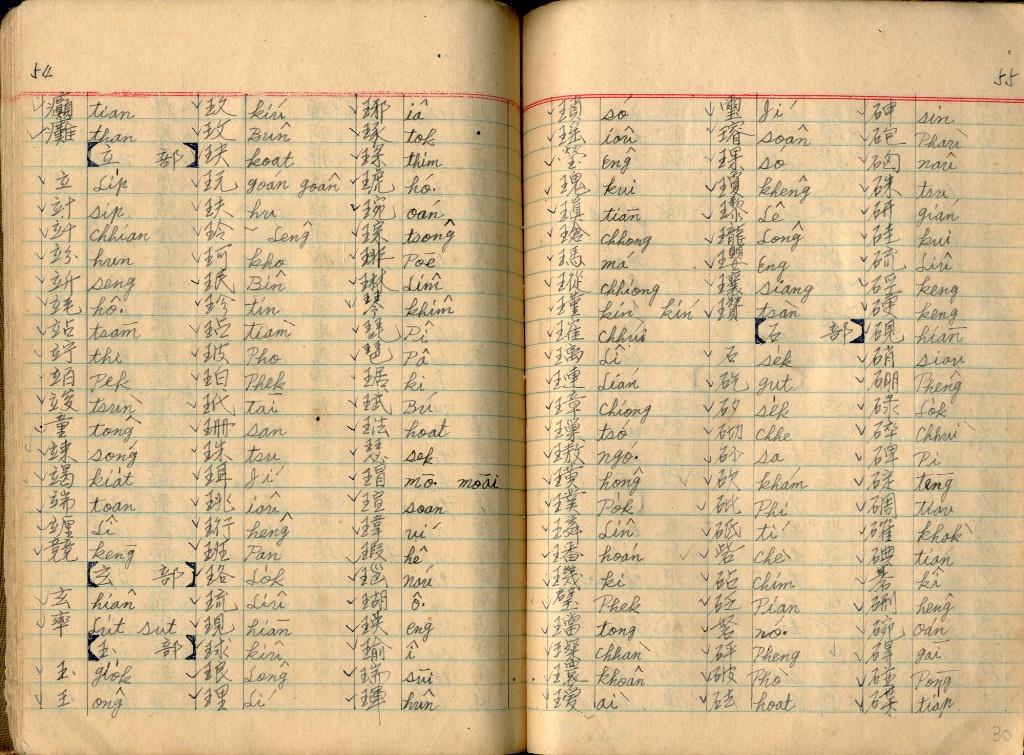 54
癲 tian
癱 than
【立 部】
立 Li̍p
竍 si̍p
竏 chhian
竕 hun
竔 seng
竓 hô͘
站 tsām
竚 thi
竡 Pek
竣 tsùn
童 tông
竦 sóng
竭 kiat
端 toan
竰 Lî
競 kēng
【玄 部】
玄 hiân
率 Lu̍t sut
【玉 部】
玉 gio̍k
王 ông
玖 kiú
玫 Bûn
玦 koat
玩 goán goān
玞 hu
玲 Lêng
珂 kho
珉 Bîn
珍 tin
玷 tiàm
玻 Pho
珀 Phek
玳 tāi
珊 san
珠 tsu
珥 Jí
珧 iâu
珩 hêng
班 Pan
珞 Lo̍k
琉 Liû
現 hiān
球 kiû
琅 Lông
理 Lí
琊 iâ
琢 tok
琛 thim
琥 hó͘
琬 oán
琮 tsông
琲 Poē
琳 Lîm
琴 khîm
琵 Pî
琶 Pâ
琚 ki
珷 Bú
琺 hoat
瑟 sek
瑁 mō͘ moāi
瑄 soan
瑋 uí
瑕 hê
瑙 náu
瑚 ô͘
瑛 eng
瑜 î
瑞 sūi
琿 hûn
55
瑣 só
瑤 iâu
瑩 êng
瑰 kui
瑱 tiān
瑲 chhong
瑪 má
瑽 chhiong
瑾 kīn kín
璀 chhúi
璃 Lî
璉 Lián
璋 chiong
璅 tsó
璈 ngô͘
璜 hông
璞 Pok
璘 Lîn
璠 hoân
璣 ki
璧 Phek
璫 tong
璨 chhàn
環 khoân
璦 ài
璽 Jí
璿 soân
so
瓊 khêng
瓈 Lê
瓏 Lông
瓔 Eng
瓖 siang
瓚 tsàn
【石 部】
石 se̍k
矻 gut
矽 se̍k
砌 chhe
砂 sa
砍 kham
砒 Phi
砥 tí
砦 chè
砧 chim
砭 Pian
砮 nó͘
砰 Pheng
破 Phò
砝 hoat
砷 sin
砲 Phàu
硇 nâu
硃 tsu
研 gián
硅 kui
硫 Liû
硜 keng
硬 kēng
硯 hiān
硝 siau
硼 Phêng
碌 Lo̍k
碎 chhùi
碑 Pi
碇 tēng
碉 tiau
確 khok
碘 tián
碁 kî
硎 hêng
碗 oán
碍 gāi
碰 Pōng
碟 tia̍p
30